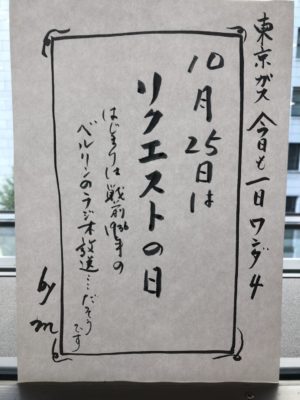 東京ガス 今日も一日ワンダ4
10月25日は
リクエストの日
はじまりは戦前1936年の
ベルリンのラジオ放送…だそうです
by m